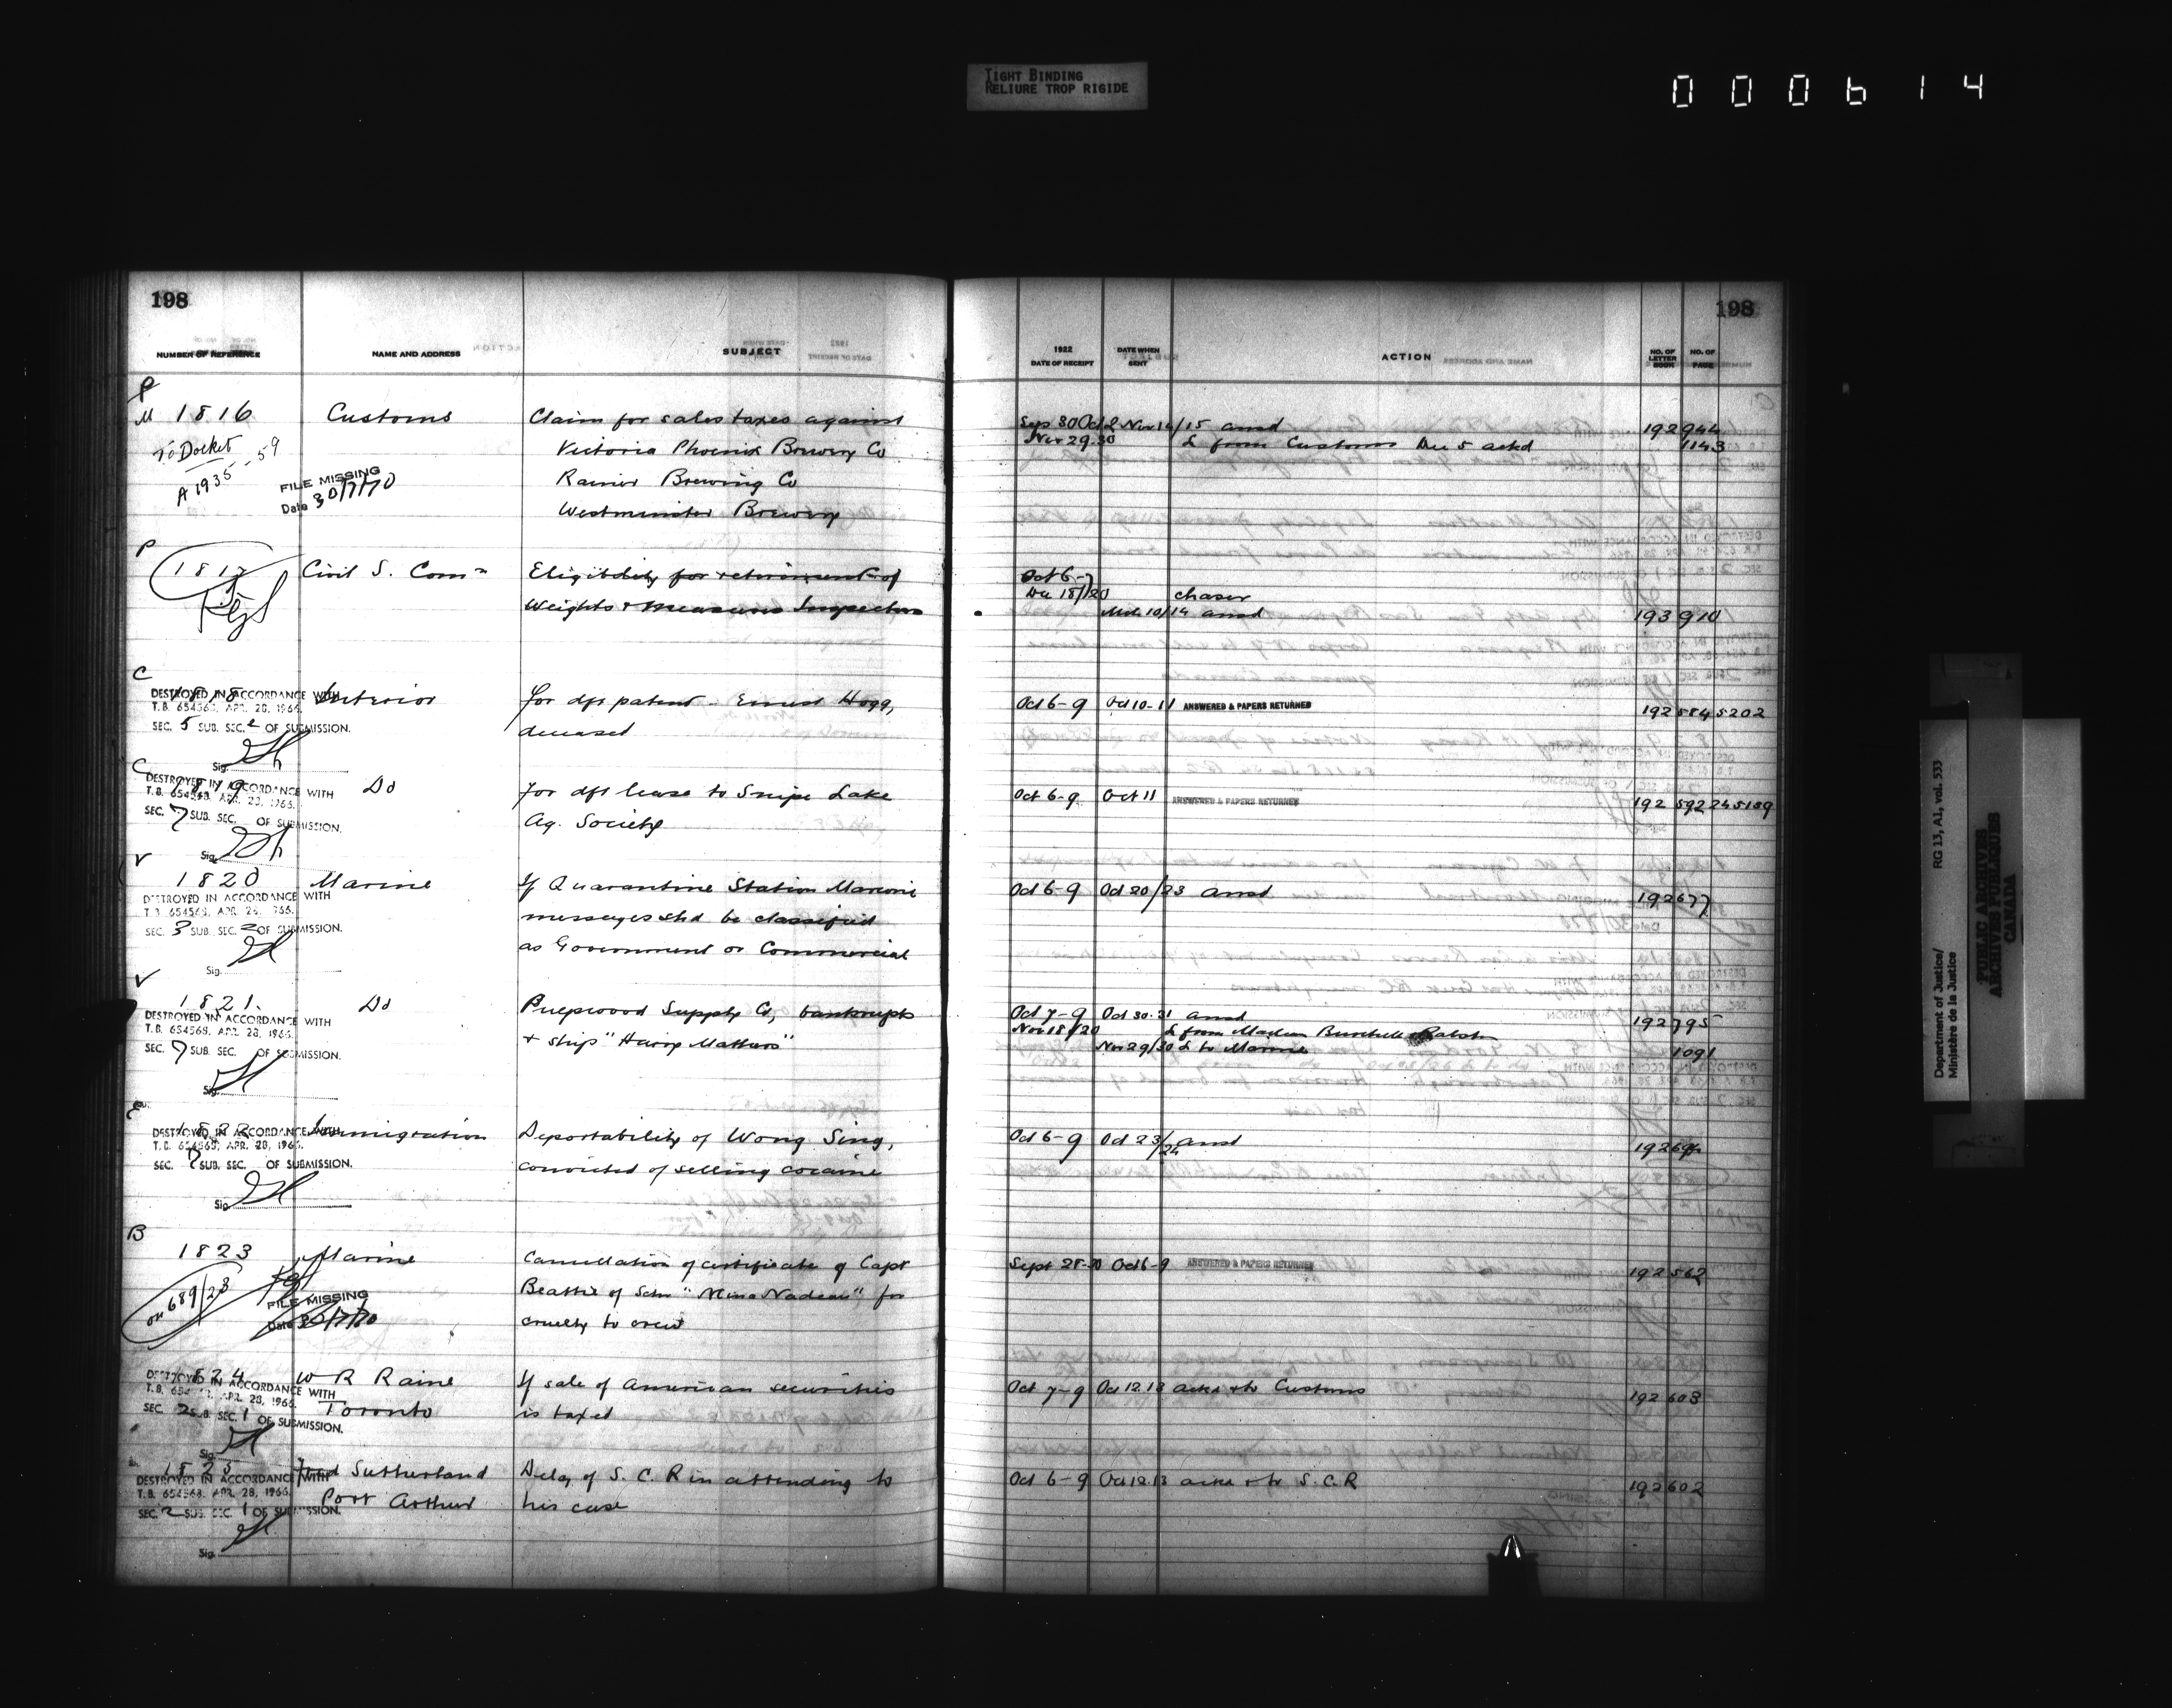 TIGHT BINDING
RELIURE TROP RIGIDE
000614
198
NUMBER OF REFERENCE NAME AND ADDRESS SUBJECT
P
M 1816 Customs Claim for sales taxes against
To Docket Victoria Phoenix Brewery Co
A 1935-59 FILE MISSING Rainier Brewing Co
Date 30/7/70 Westminster Brewery
P
1817 Civil S. Comn Eligibility for retirement of
Weights & Measures Inspectors
C
1818 Interior for dft patent - Ernest Hogg,
deceased
DESTROYED IN ACCORDANCE WITH
T.B. 654568, APR. 28, 1966.
SEC. 5 SUB. SEC. 2 OF SUBMISSION.
Sig.
C
1819 Do for dft lease to Snipe Lake
Ag. Society
DESTROYED IN ACCORDANCE WITH
T.B. 654568, APR. 28, 1966.
SEC. 7 SUB. SEC. OF SUBMISSION.
Sig.
V
1820 Marine If Quarantine Station Marconi
messages shd be classified
as Government or Commercial
DESTROYED IN ACCORDANCE WITH
T.B. 654568, APR. 28, 1966.
SEC. 3 SUB. SEC. 2 OF SUBMISSION.
Sig.
V
1821. Do Pulpwood Supply Co, bankrupts
& ship "Harry Mathers"
DESTROYED IN ACCORDANCE WITH
T.B. 654568, APR. 28, 1966.
SEC. 7 SUB. SEC. OF SUBMISSION.
Sig.
E
1822 Immigration Deportability of Wong Sing,
convicted of selling cocaine
DESTROYED IN ACCORDANCE WITH
T.B. 654568, APR. 28, 1966.
SEC. 7 SUB. SEC. OF SUBMISSION.
Sig.
B
1823 Marine Cancellation of certificate of Capt
on 689/23 Beattie of Schr "Mina Nadeau" for
FILE MISSING cruelty to crew
Date 30/7/70
1824 W R Raine If sale of American securities
Toronto is taxed
DESTROYED IN ACCORDANCE WITH
T.B. 654568, APR. 28, 1966.
SEC. 2 SUB. SEC. 1 OF SUBMISSION.
Sig.
1825 Fred Sutherland Delay of S. C. R in attending to
Port Arthur his case
DESTROYED IN ACCORDANCE WITH
T.B. 654568, APR. 28, 1966.
SEC. 2 SUB. SEC. 1 OF SUBMISSION.
Sig.
198
1922 DATE OF RECEIPT DATE WHEN SENT ACTION NO. OF LETTER BOOK NO. OF PAGE
Sep 30 Oct 2 Nov 14/15 ansd 192 944
Nov 29.30 L from Customs Dec 5 ackd 1143
Oct 6-7
Dec 18/20 chaser
Mch 10/14 ansd 193 910
Oct 6-9 Oct 10-11 ANSWERED & PAPERS RETURNED 192 584 5202
Oct 6-9 Oct 11 ANSWERED & PAPERS RETURNED 192 592 24 5189
Oct 6-9 Oct 20/23 ansd 192 677
Oct 7-9 Oct 30.31 ansd 192 795
Nov 18/20 L from Maclean Burchell & Ralston
Nov 29/30 L to Marine 1091
Oct 6-9 Oct 23/24 ansd 192
Sept 28-30 Oct 6-9 ANSWERED & PAPERS RETURNED 192 562
Oct 7-9 Oct 12.13 ackd & to Customs 192 603
Oct 6-9 Oct 12.13 ackd & to S.C.R 192 602
Department of Justice/ RG 13, A1, vol. 533
Ministère de la Justice
PUBLIC ARCHIVES
ARCHIVES PUBLIQUES
CANADA